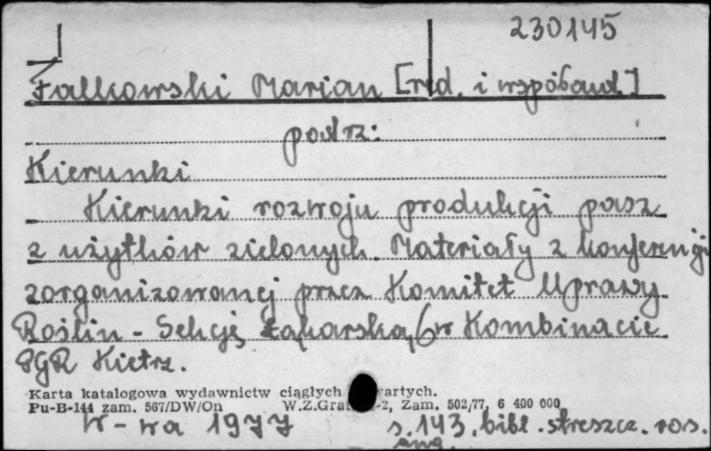 230145
Falkowski Marian [red. i współaut.]
patrz:
Kierunki
Kierunki rozwoju produkcji pasz
z użytków zielonych. Materiały z konferencji
zorganizowanej przez Komitet Uprawy
Roślin - Sekcję Łąkarską w Kombinacie
PGR Kietrz.
Karta katalogowa wydawnictw ciągłych wartych.
Pu-B-144 zam. 567/DW/On W.Z.Graf -2, Zam. 502/77, 6 400 000
W-wa 1977 s. 143, bibl. streszcz. ros.
ang.